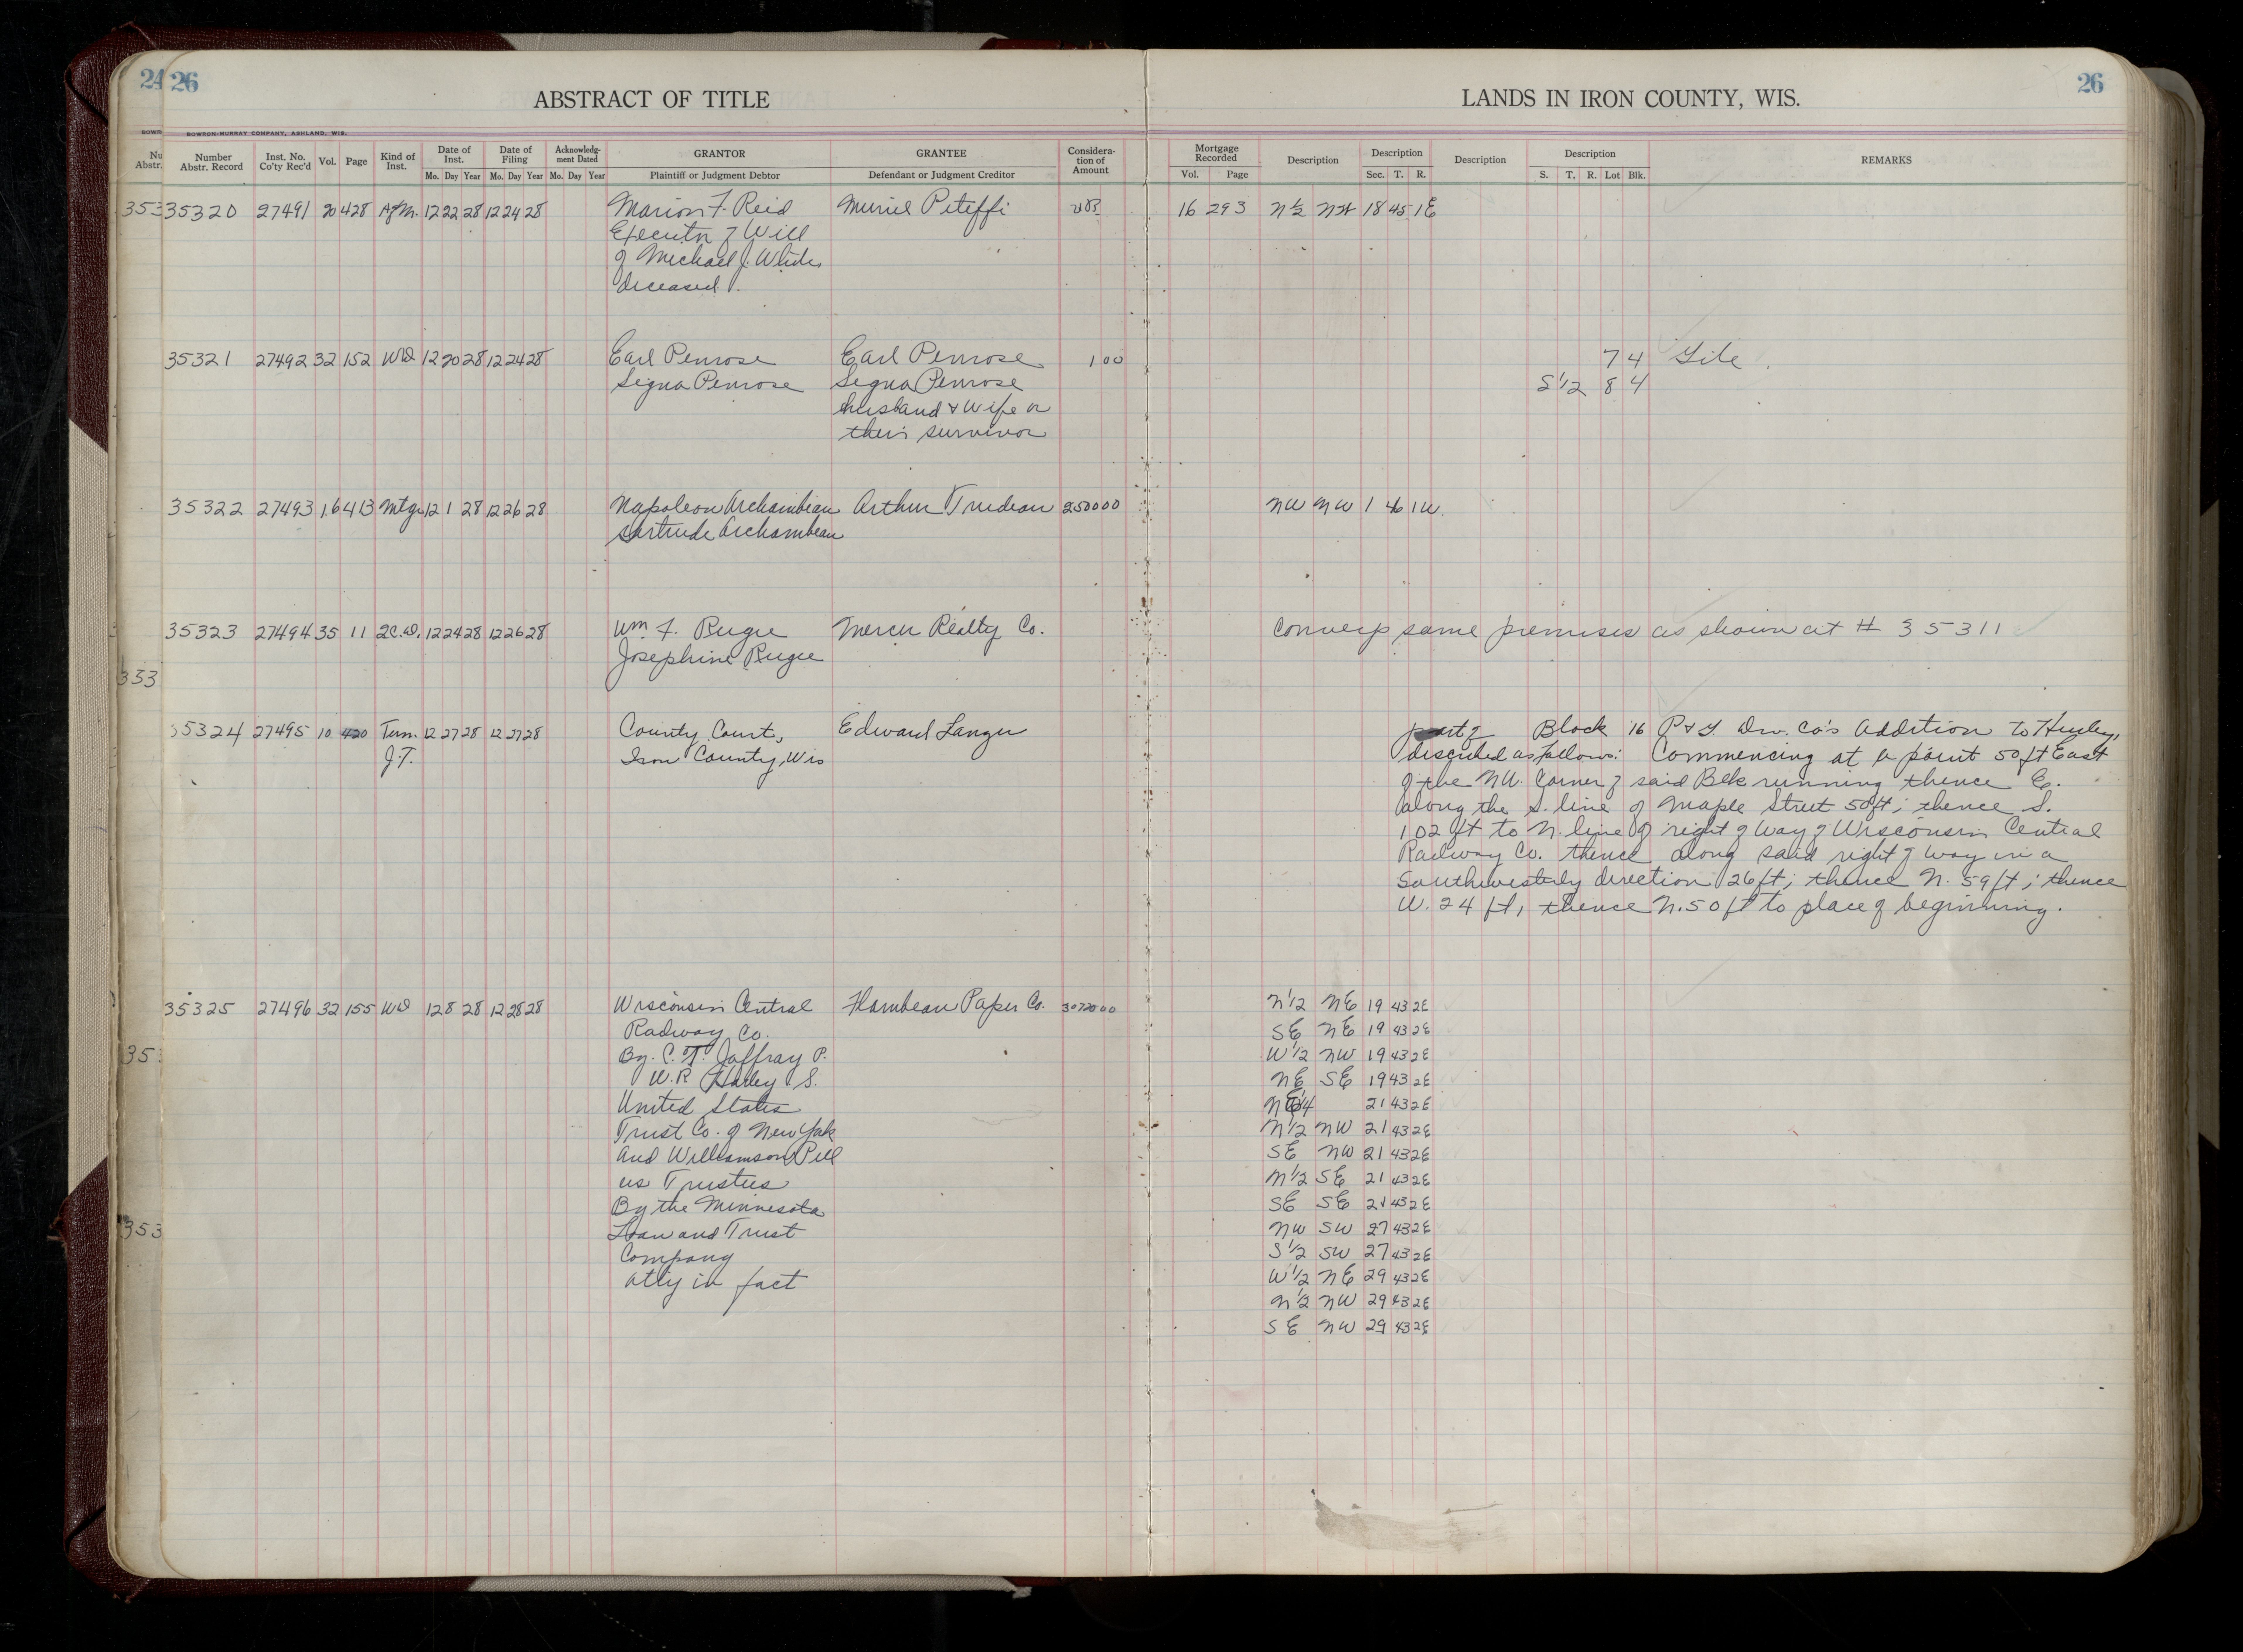 24 26
ABSTRACT OF TITLE
LANDS IN IRON COUNTY, WIS.
26
BOWRON-MURRAY COMPANY, ASHLAND, WIS.
Number Abstr. Record
Inst. No. Co'ty Rec'd
Vol.
Page
Kind of Inst.
Date of Inst.
Mo. Day Year
Date of Filing
Mo. Day Year
Acknowledg-ment Dated
Mo. Day Year
GRANTOR
Plaintiff or Judgment Debtor
GRANTEE
Defendant or Judgment Creditor
Considera-tion of Amount
Mortgage Recorded
Vol. Page
Description
Description
Sec. T. R.
Description
Description
S. T. R. Lot Blk.
REMARKS
35320 27491 20 428 12 22 28 12 24 28 Marion F. Reid Muriel Piteffi 16 293 N½ 18 45 1E
Executor of Will
of Michael J. White
deceased.
35321 27492 32 152 WD 12 20 28 12 24 28 Earl Penrose Earl Penrose 1 00 7 4
Signa Penrose Signa Penrose S1/2 8 4
husband & Wife or
their survivor
35322 27493 16 413 Mtge 12 1 28 12 26 28 Napoleon Archambeau Arthur Trudeau 2500 00 NW NW 1 46 1W.
Gertrude Archambeau
35323 27494 35 11 2C.D. 12 24 28 12 26 28 Wm F. Rugee Mercer Realty Co. Conveys same premises as shown at # 35311
Josephine Rugee
353
35324 27495 10 420 Term. 12 27 28 12 27 28 County Court, Edward Langer part of Block 16 Co's Addition to Hurley,
J.T. Iron County, Wis described as follows: Commencing at a point 50 ft East
of the NW. Corner of said Blk running thence E.
along the S. line of Maple Street 50 ft; thence S.
102 ft to N. line of right of Way of Wisconsin Central
Railway Co. thence along said right of way in a
Southwesterly direction 26 ft; thence N. 59 ft; thence
W. 24 ft, thence N. 50 ft to place of beginning.
35325 27496 32 155 WD 12 8 28 12 28 28 Wisconsin Central Flambeau Paper Co. 30720 00 N1/2 NE 19 43 2E
Railway Co. SE NE 19 43 2E
By. C. T. Jaffray P. W1/2 NW 19 43 2E
W.R Harley S. NE SE 19 43 2E
United States NE1/4 21 43 2E
Trust Co. of New York N1/2 NW 21 43 2E
and Williamson Pell SE NW 21 43 2E
as Trustees N1/2 SE 21 43 2E
By the Minnesota SE SE 21 43 2E
Loan and Trust NW SW 27 43 2E
Company S1/2 SW 27 43 2E
atty in fact W1/2 NE 29 43 2E
N1/2 NW 29 43 2E
SE NW 29 43 2E